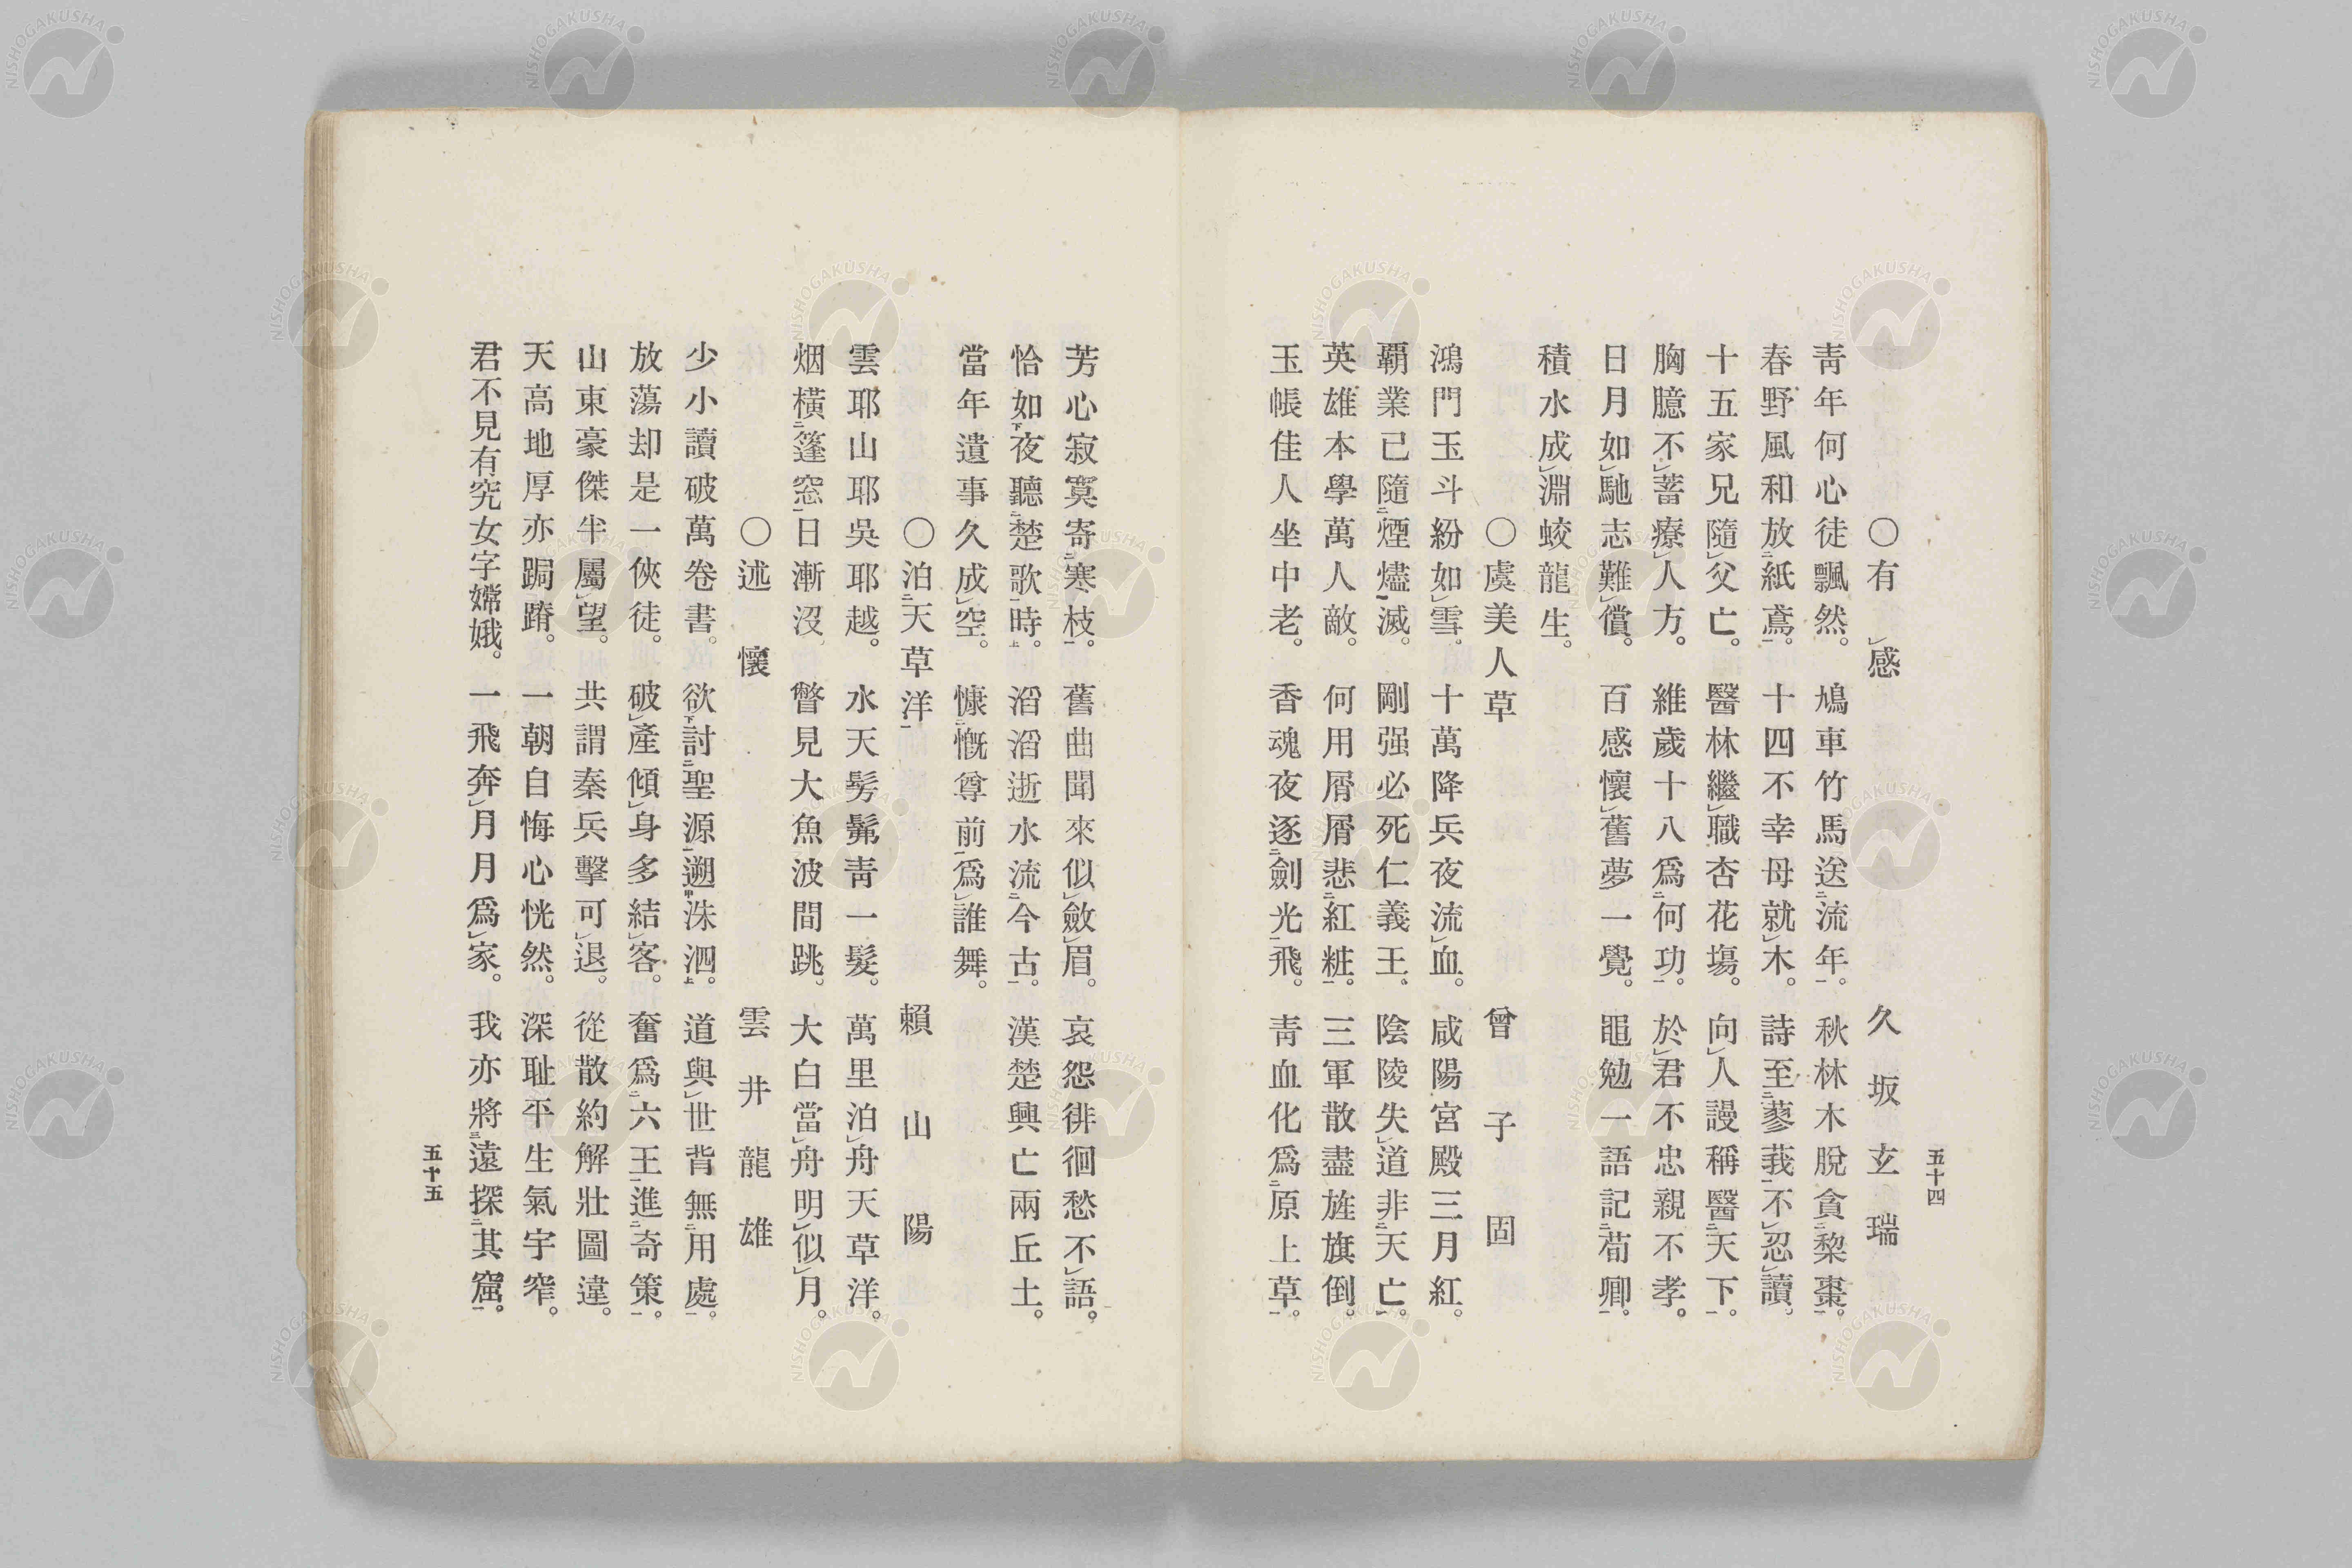 五十四
○有レ感 久坂玄瑞
靑年何心徒飄然。鳩車竹馬送二流年一。秋林木脫貪二棃棗一。
春野風和放二紙鳶一。十四不幸母就レ木。詩至二蓼莪一不レ忍レ讀。
十五家兄隨レ父亡。醫林繼レ職杏花塲。向レ人謾稱醫二天下一。
胸臆不レ蓄療レ人方。維歲十八爲二何功一。於レ君不忠親不孝。
日月如レ馳志難レ償。百感懷レ舊夢一覺。黽勉一語記二荀卿一。
積水成レ淵蛟龍生。
○虞美人草 曾子固
鴻門玉斗紛如レ雪。十萬降兵夜流レ血。咸陽宮殿三月紅。
覇業已隨二煙燼一滅。剛强必死仁義王。陰陵失レ道非二天亡一。
英雄本學萬人敵。何用屑屑悲二紅粧一。三軍散盡旌旗倒。
玉帳佳人坐中老。香魂夜逐二劍光一飛。靑血化爲二原上草一。
芳心寂寞寄二寒枝一。舊曲聞來似レ斂レ眉。哀怨徘徊愁不レ語。
恰如下夜聽二楚歌一時上。滔滔逝水流二今古一。漢楚興亡兩丘土。
當年遺事久成レ空。慷二慨尊前一爲レ誰舞。
○泊二天草洋一 賴山陽
雲耶山耶吳耶越。水天髣髴靑一髮。萬里泊レ舟天草洋。
烟橫二篷窓一日漸沒。瞥見大魚波間跳。大白當レ舟明レ似レ月。
○述懷 雲井龍雄
少小讀破萬卷書。欲下討二聖源一遡中洙泗上。道與レ世背無二用處一。
放蕩却是一俠徒。破レ產傾レ身多結レ客。奮爲二六王一進二奇策一。
山東豪傑半屬レ望。共謂秦兵擊可レ退。從散約解壯圖違。
天高地厚亦跼蹐。一朝自悔心恍然。深耻平生氣宇窄。
君不見有究女字嫦娥。一飛奔レ月月爲レ家。我亦將三遠探二其窟一。
五十五